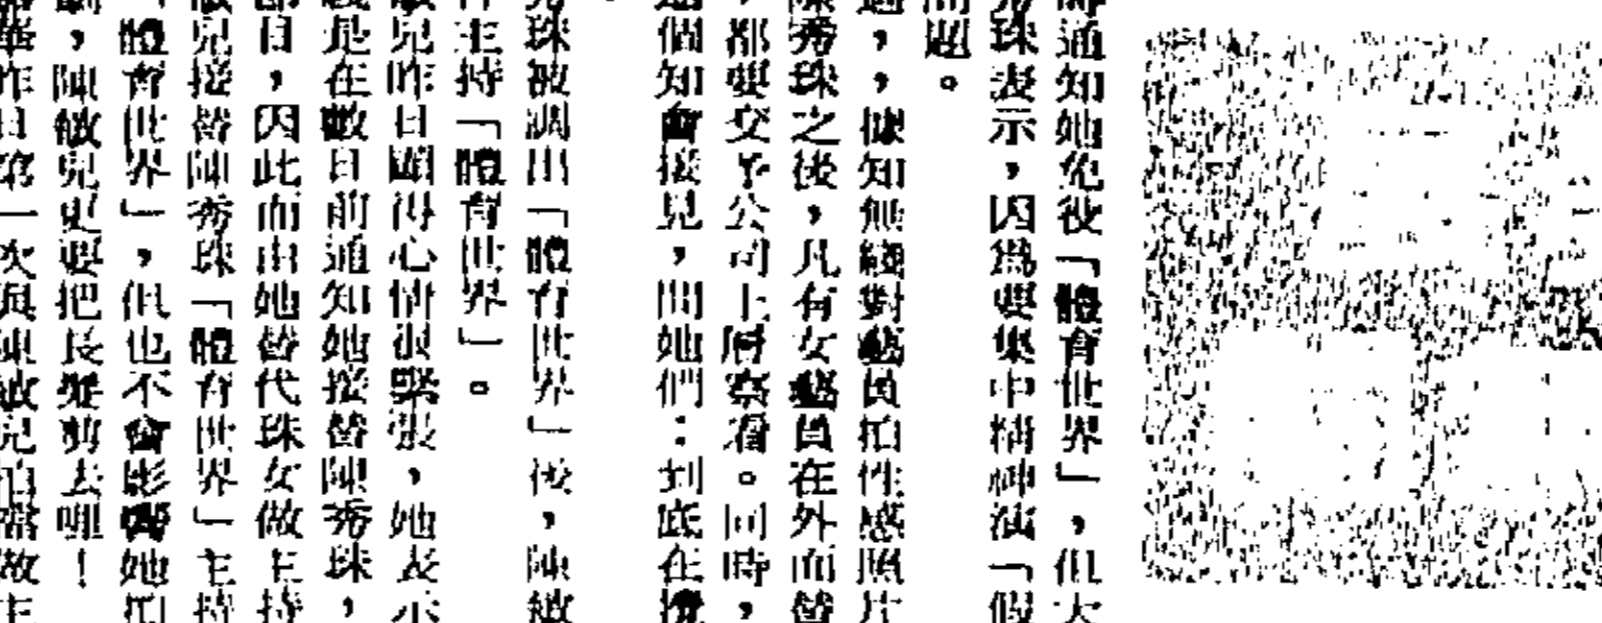 師通知她免役「體育世界」，但大
秀珠表示，因爲要集中精神演「假
問題。
過，，據知無綫對藝員拍性感照片
陳秀珠之後，凡有女藝員在外面替
，都要交予公司上層察看。同時，
這個知會接見，問她們：到底在攪
秀珠被調出「體育世界」後，陳敏
主持「體育世界」。
敏兒昨日顯得心情很緊張，她表示
是在數日前通知她接替陳秀珠，
節目，因此而由她替代珠女做主持
敏兒接替陳秀珠「體育世界」主持
「體育世界」，但也不會影響她拍
劇，陳敏兒更要把長髮剪去哩！
華昨日第一次與陳敏兒拍檔做主